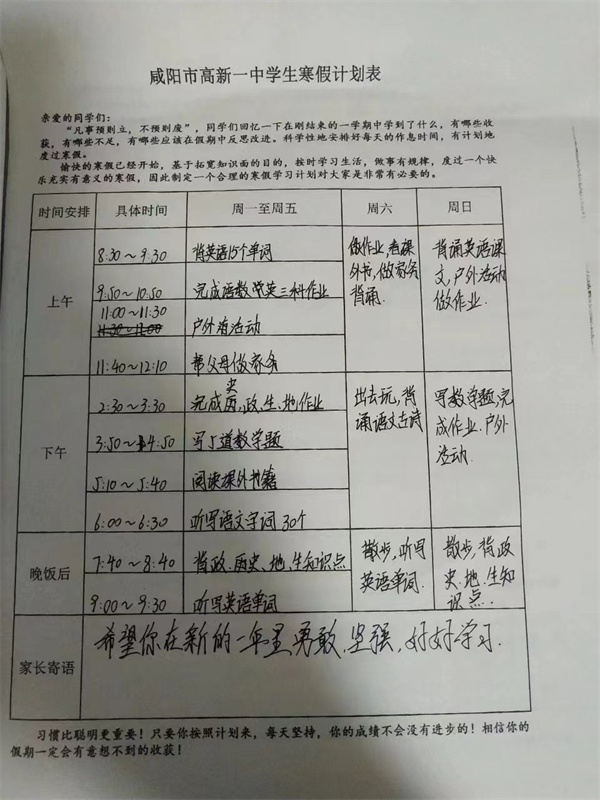 咸阳市高新一中学生寒假计划表
亲爱的同学们：
“凡事预则立，不预则废”，同学们回忆一下在刚结束的一学期中学到了什么，有哪些收
获，有哪些不足，有哪些应该在假期中反思改进。科学性地安排好每天的作息时间，有计划地
度过寒假。
愉快的寒假已经开始，基于拓宽知识面的目的，按时学习生活，做事有规律，度过一个快
乐充实有意义的寒假，因此制定一个合理的寒假学习计划对大家是非常有必要的。
时间安排 具体时间 周一至周五 周六 周日
上午
8:30～9:30 背英语15个单词
9:50～10:50 完成语数英三科作业
11:00～11:30
11:30～12:00
户外活动
11:40～12:10 帮父母做家务
做作业，看课
外书，做家务
背诵.
背诵英语课
文，户外活动
做作业.
下午
2:30～3:30 完成历史、政、生、地作业
3:50～4:50 写5道数学题
5:10～5:40 阅读课外书籍
6:00～6:30 听写语文字词30个
出去玩，背
诵语文古诗
写数学题，完
成作业、户外
活动.
晚饭后
7:40～8:40 背政、历史、地、生知识点
9:00～9:30 听写英语单词
散步，听写
英语单词.
散步，背政
史、地、生知
识点.
家长寄语
希望你在新的一年里勇敢、坚强，好好学习.
习惯比聪明更重要！只要你按照计划来，每天坚持，你的成绩不会没有进步的！相信你的
假期一定会有意想不到的收获！